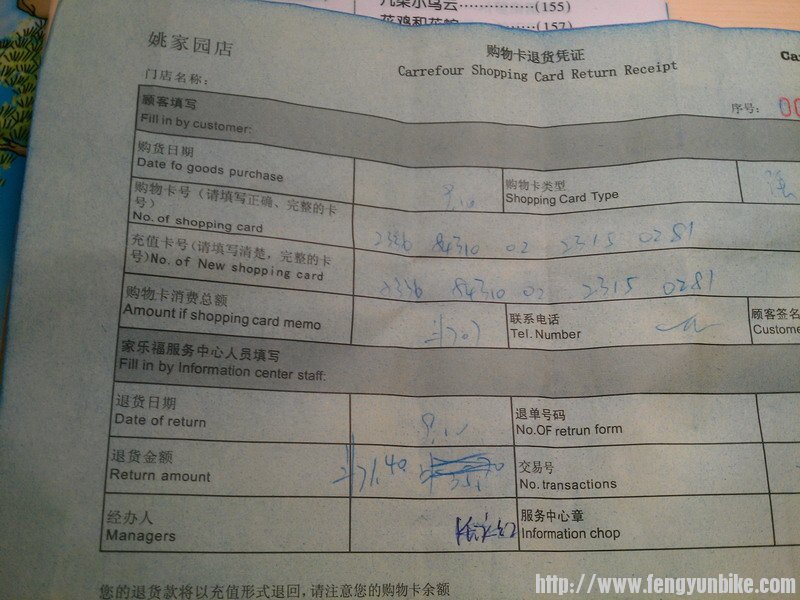 九梁小乌云……………(155)
(157)
姚家园店
购物卡退货凭证
Carrefour Shopping Card Return Receipt
门店名称:
序号:
顾客填写
Fill in by customer:
购货日期
Date fo goods purchase
9.10
购物卡类型
Shopping Card Type
购物卡号（请填写正确、完整的卡
号）
No. of shopping card
2336 84310 02 2315 0281
充值卡号(请填写清楚，完整的卡
号)No. of New shopping card
2336 84310 02 2315 0281
购物卡消费总额
Amount if shopping card memo
联系电话
Tel. Number
顾客签名
Custome
家乐福服务中心人员填写
Fill in by Information center staff:
退货日期
Date of return
退单号码
No.OF retrun form
退货金额
Return amount
交易号
No. transactions
经办人
Managers
服务中心章
Information chop
您的退货款将以充值形式退回,请注意您的购物卡余额
http://www.fengyunbike.com